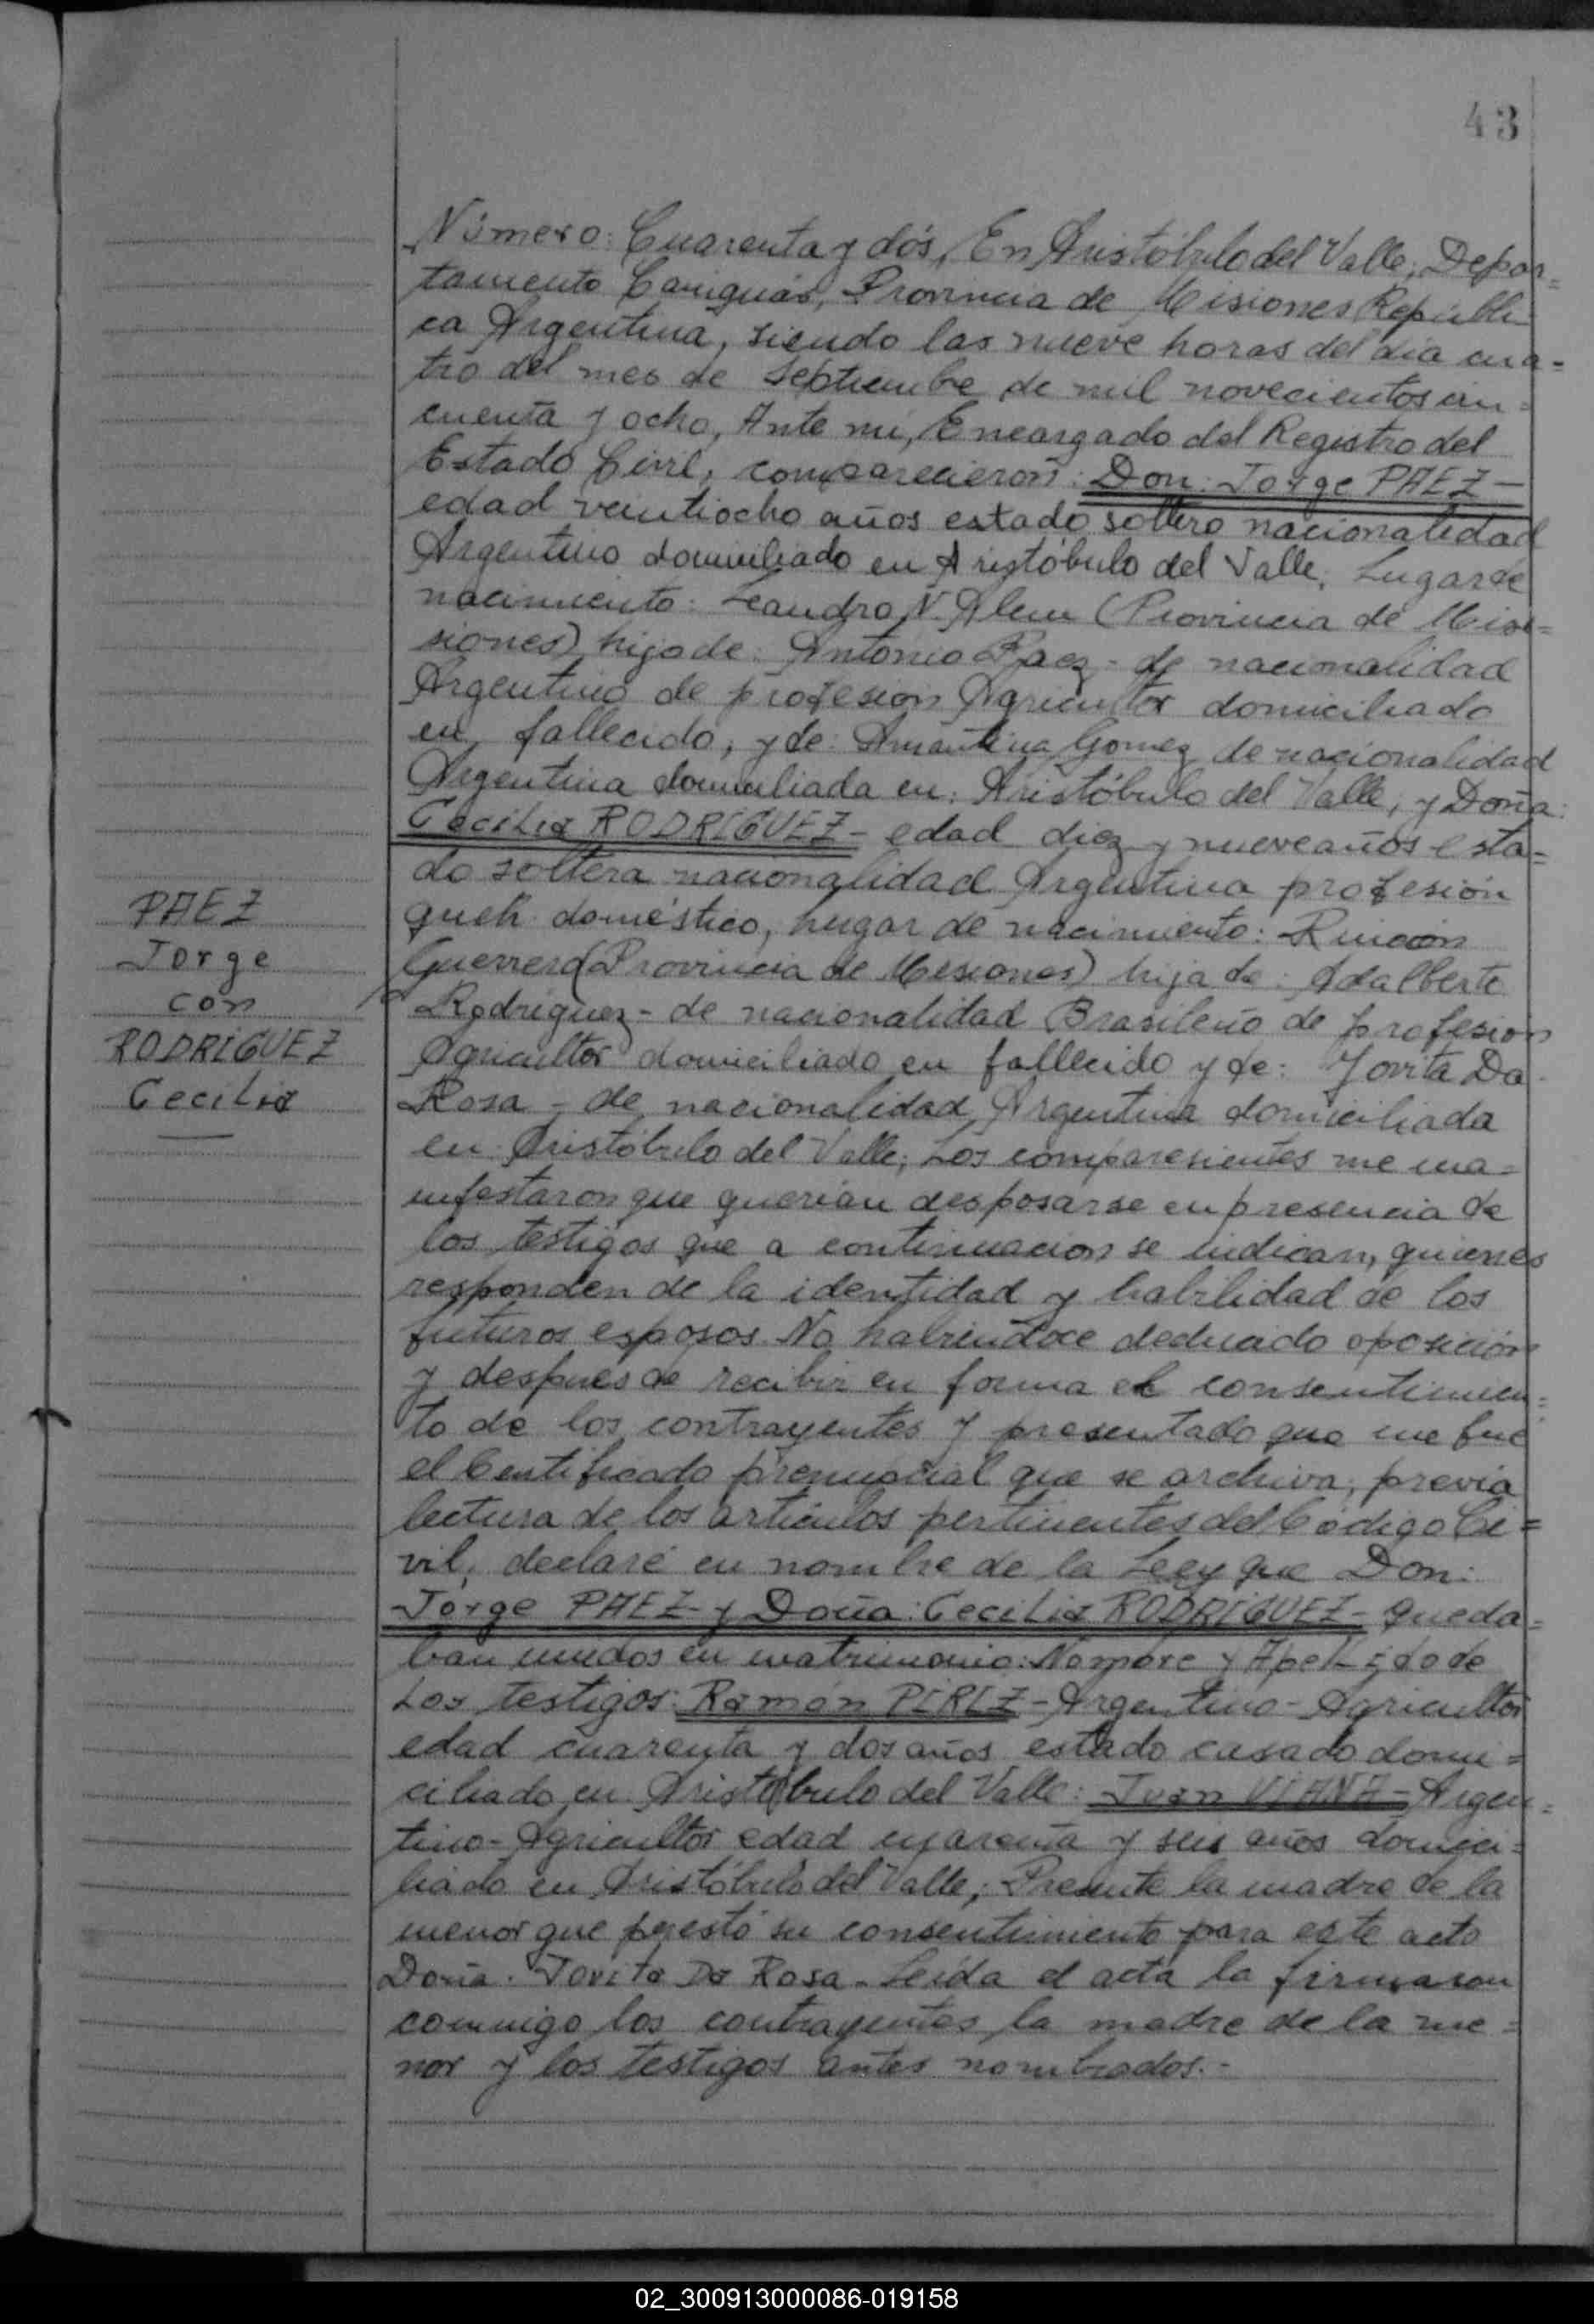 43
Número: Cuarenta y dós, En Aristóbulo del Valle, Depar=
tamento Cainguás, Provincia de Misiones Republi
ca Argentina, siendo las nueve horas del día cua=
tro del mes de Septiembre de mil novecientos cin=
cuenta y ocho, Ante mi, Encargado del Registro del
Estado Civil, comparecieron: Don: Jorge PAEZ-
edad veintiocho años estado soltero nacionalidad
Argentino domiciliado en Aristóbulo del Valle, Lugar de
nacimiento: Leandro N. Alem (Provincia de Misi=
siones) hijo de: Antonio Paez- de nacionalidad
Argentino de profesion Agricultor domiciliado
en fallecido, y de: Amantina Gomez de nacionalidad
Argentina domiciliada en: Aristóbulo del Valle, y Doña:
Cecilia RODRIGUEZ- edad diez y nueve años esta=
do soltera nacionalidad Argentina profesión
queh. doméstico, lugar de nacimiento: Rincon
Guerrero (Provincia de Misiones) hija de: Adalberto
Rodriguez- de nacionalidad Brasileño de profesion
Agricultor domiciliado en fallecido y de: Jovita Da
Rosa- de nacionalidad Argentina domiciliada
en Aristóbulo del Valle; Los comparesientes me ma=
nifestaron que querian desposarse en presencia de
los testigos que a continuacion se indican, quienes
responden de la identidad y habilidad de los
futuros esposos. No habiendoce deducido oposición
y despues de recibir en forma el consentimien=
to de los contrayentes y presentado que me fue
el Certificado prenupcial que se archiva, previa
lectura de los artículos pertinentes del Codigo Ci=
vil, declaré en nombre de la Leey que Don:
Jorge PAEZ- y Doña: Cecilia RODRIGUEZ- queda=
ban unidos en matrimonio: Nombre y Apellido de
Los testigos: Ramón PEREZ- Argentino- Agricultor
edad cuarenta y dos años estado casado domi=
ciliado en Aristóbulo del Valle: Juan VIANA- Argen=
tino- Agricultor edad cuarenta y seis años domici=
liado en Aristóbulo del Valle; Presente la madre de la
menor que prestó su consentimiento para este acto
Doña. Jovita Da Rosa- Leída el acta la firmaron
conmigo los contrayentes la madre de la me=
nor y los testigos antes nombrados.-
PAEZ
Jorge
con
RODRIGUEZ
Cecilia
02_300913000086-019158